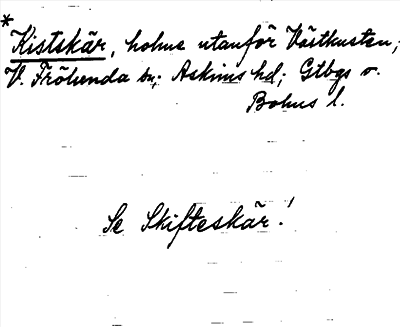 *
Kistskär, holme utanför Västkusten;
V. Frölunda sn; Askims hd; Gtbgs o.
Bohus l.
Se Skifteskär!